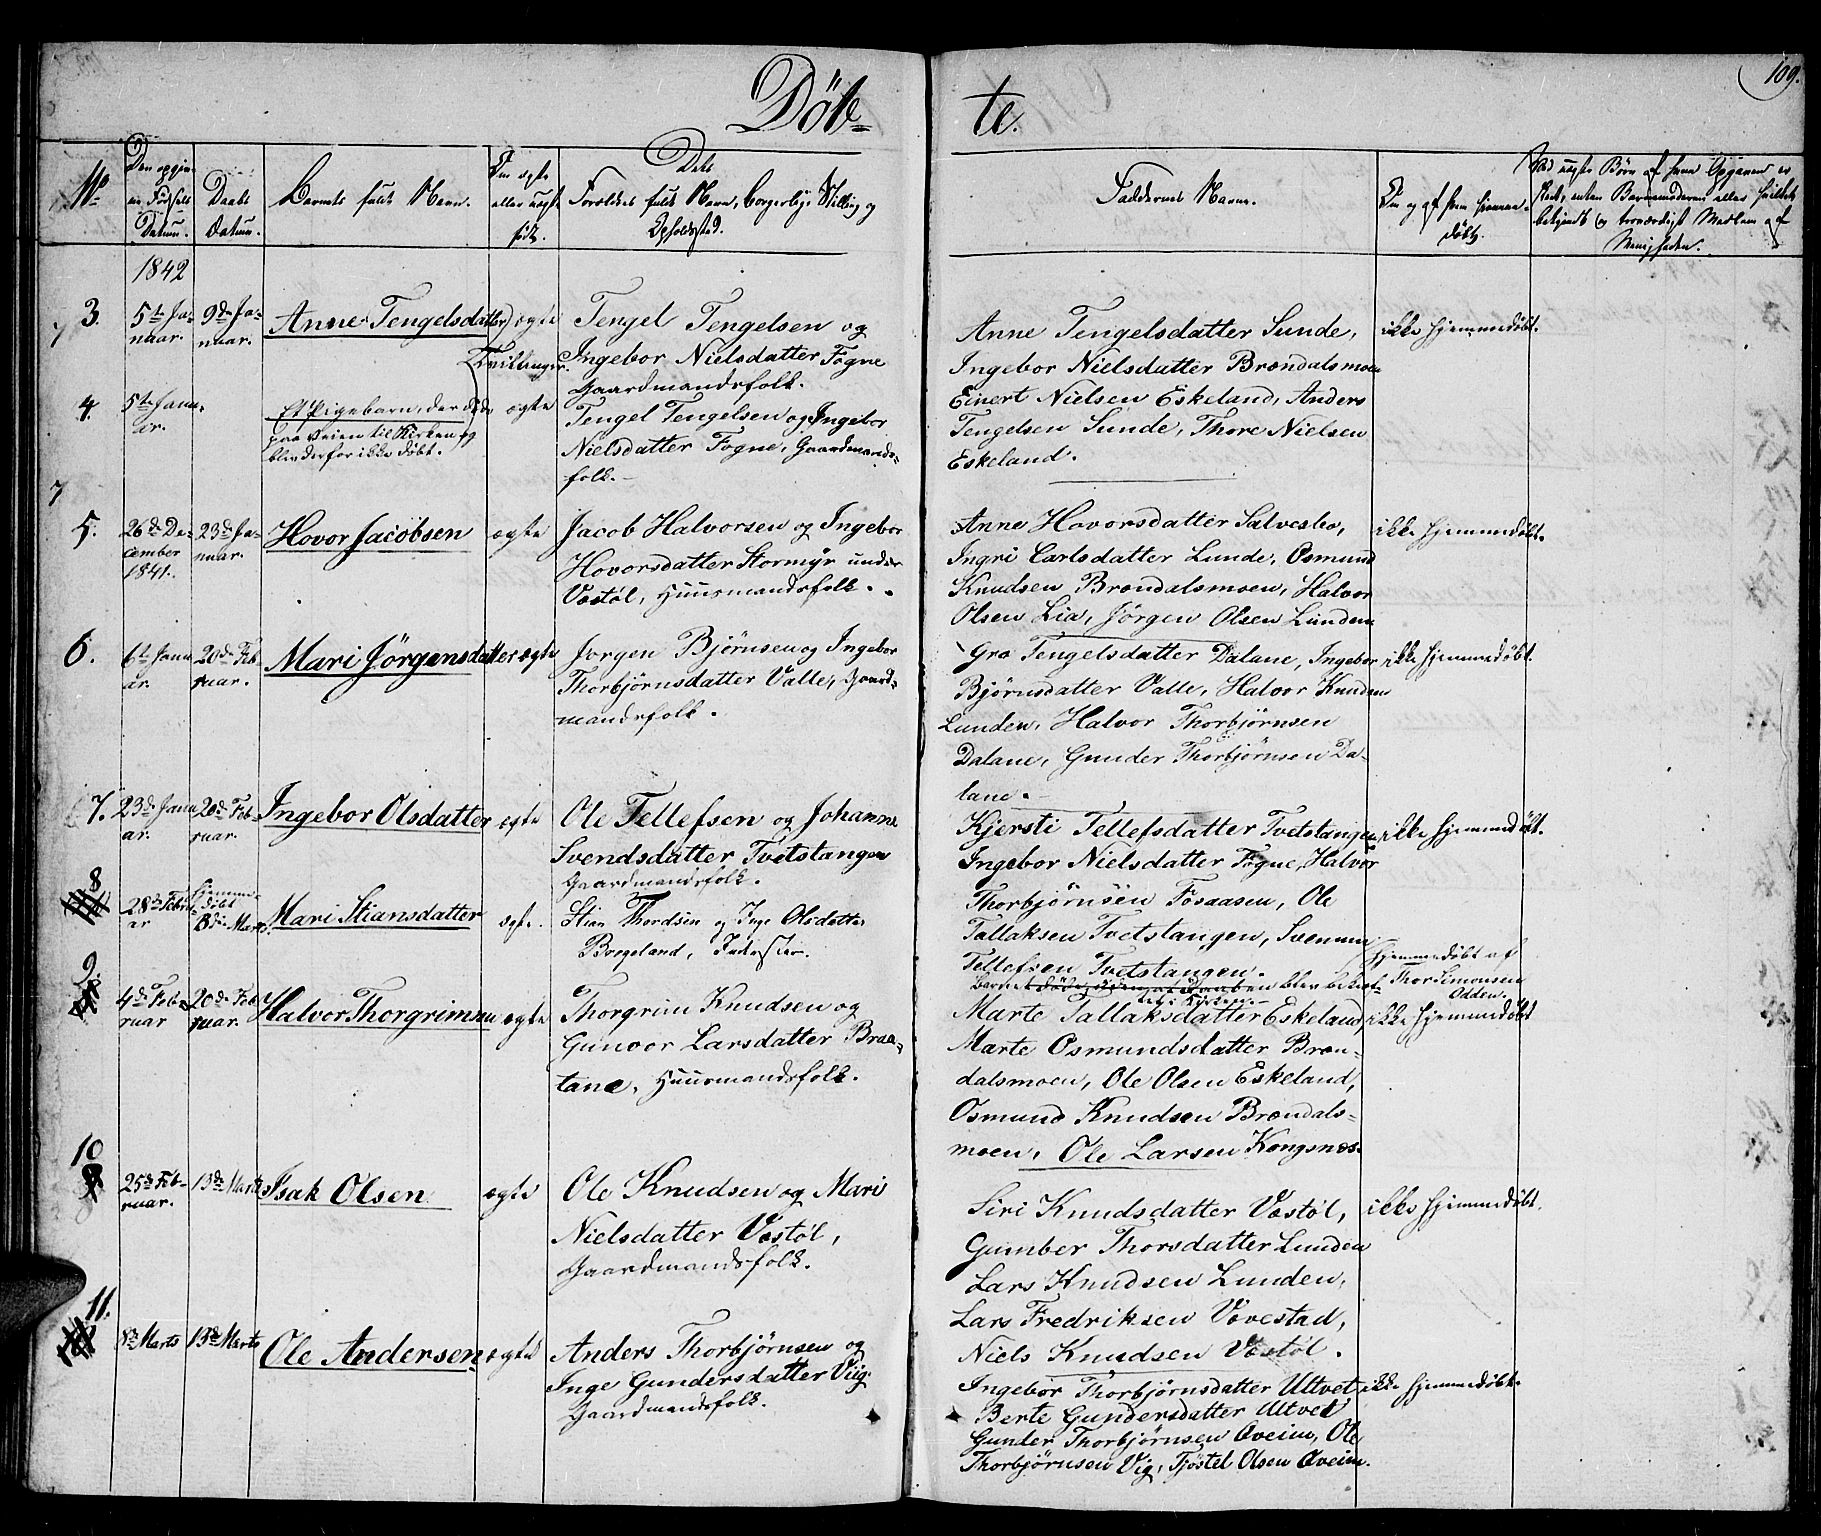 Døb- te.
109.
No
Den opgivne Fødsels Datum.
Daabs Datum.
Barnets fulde Navn.
Om ægte eller uægte født.
Dets Forældres fulde Navn, borgerlige Stilling og Opholdssted.
Faddernes Navne.
Om og af hvem hjemmedöbt.
1842
3.
5te Januar.
9de Januar.
Anne Tengelsdatter
ægte
Tvillinger.
Tengel Tengelsen og
Ingebor Nielsdatter Fogne
Gaardmandsfolk.
Anne Tengelsdatter Sunde,
Ingebor Nielsdatter Brændalsmoen
Einert Nielsen Eskeland, Anders
Tengelsen Sunde, Thore Nielsen
Eskeland.
ikke hjemmedöbt.
4.
5te Januar.
Et Pigebarn, der døde
paa Veien til Kirken og
blev derfor ikke døbt.
ægte
Tengel Tengelsen og Ingebor
Nielsdatter Fogne, Gaardmands-
folk.
5.
26de De-
cember
1841.
23de Ja-
nuar.
Hovor Jacobsen
ægte
Jacob Halvorsen og Ingebor
Hovorsdatter Stormyr under
Vastøl, Huusmandsfolk.
Anne Hovorsdatter Salvesbo,
Ingri Carlsdatter Lunde, Osmund
Knudsen Brøndalsmoen, Halvor
Olsen Lia, Jörgen Olsen Lunden
ikke hjemmedöbt.
6.
6te Janu
ar.
20de Feb
ruar.
Mari Jörgensdatter
ægte
Jørgen Bjørnsen og Ingebor
Thorbjörnsdatter Valle, Gaard-
mandsfolk.
Gro Tengelsdatter Dalane, Ingebor
Bjørnsdatter Valle, Halvor Knudsen
Lunden, Halvor Thorbjørnsen
Dalane, Gunder Thorbjørnsen Da-
lane.
ikke hjemmedöbt.
7.
23de Janu
ar.
20de Feb-
ruar.
Ingebor Olsdatter
ægte
Ole Tellefsen og Johanne
Svendsdatter Tvetstangen
Gaardmandsfolk.
Kjersti Tellefsdatter Tvetstangen
Ingebor Nielsdatter Fogne, Halvor
Thorbjørnsen Fosaasen, Ole
Tallaksen Tvetstangen, Svenum
Tellefsen Tvetstangen.
ikke hjemmedöbt.
8
28de Febru
ar
hjemme-
döbt
Mari Stiansdatter
ægte.
Stian Thordsen og Inge Olsdatter
Borgeland, Inderster.
hjemmedöbt af
Thor Simonsen
Odden.
9.
4de Feb-
ruar
20de Feb
ruar.
Halvor Thorgrimsen
ægte
Thorgrim Knudsen og
Gunvor Larsdatter Braa-
tane, Huusmandsfolk.
Marte Tallaksdatter Eskeland,
Marte Osmundsdatter Bræn-
dalsmoen, Ole Olsen Eskeland,
Osmund Knudsen Brændals-
moen, Ole Larsen Kongsnæs
ikke hjemmedöbt
10
25de Feb-
ruar.
13de Marts
Isak Olsen
ægte
Ole Knudsen og Mari
Nielsdatter Vastøl,
Gaardmandsfolk.
Siri Knudsdatter Vastøl,
Gumber Thorsdatter Lunden
Lars Knudsen Lunden,
Lars Fredriksen Vovestad,
Niels Knudsen Vastøl.
ikke hjemmedöbt.
11.
8de Marts
13de Marts
Ole Andersen
ægte
Anders Thorbjørnsen og
Inge Gundersdatter Viig
Gaardmandsfolk.
Ingebor Thorbjørnsdatter Uttvet
Berte Gundersdatter Uttvet
Gunder Thorbjørnsen Aveim, Ole
Thorbjørnsen Vig, Tjöstel Olsen Aveim.
ikke hjemmedöbt.